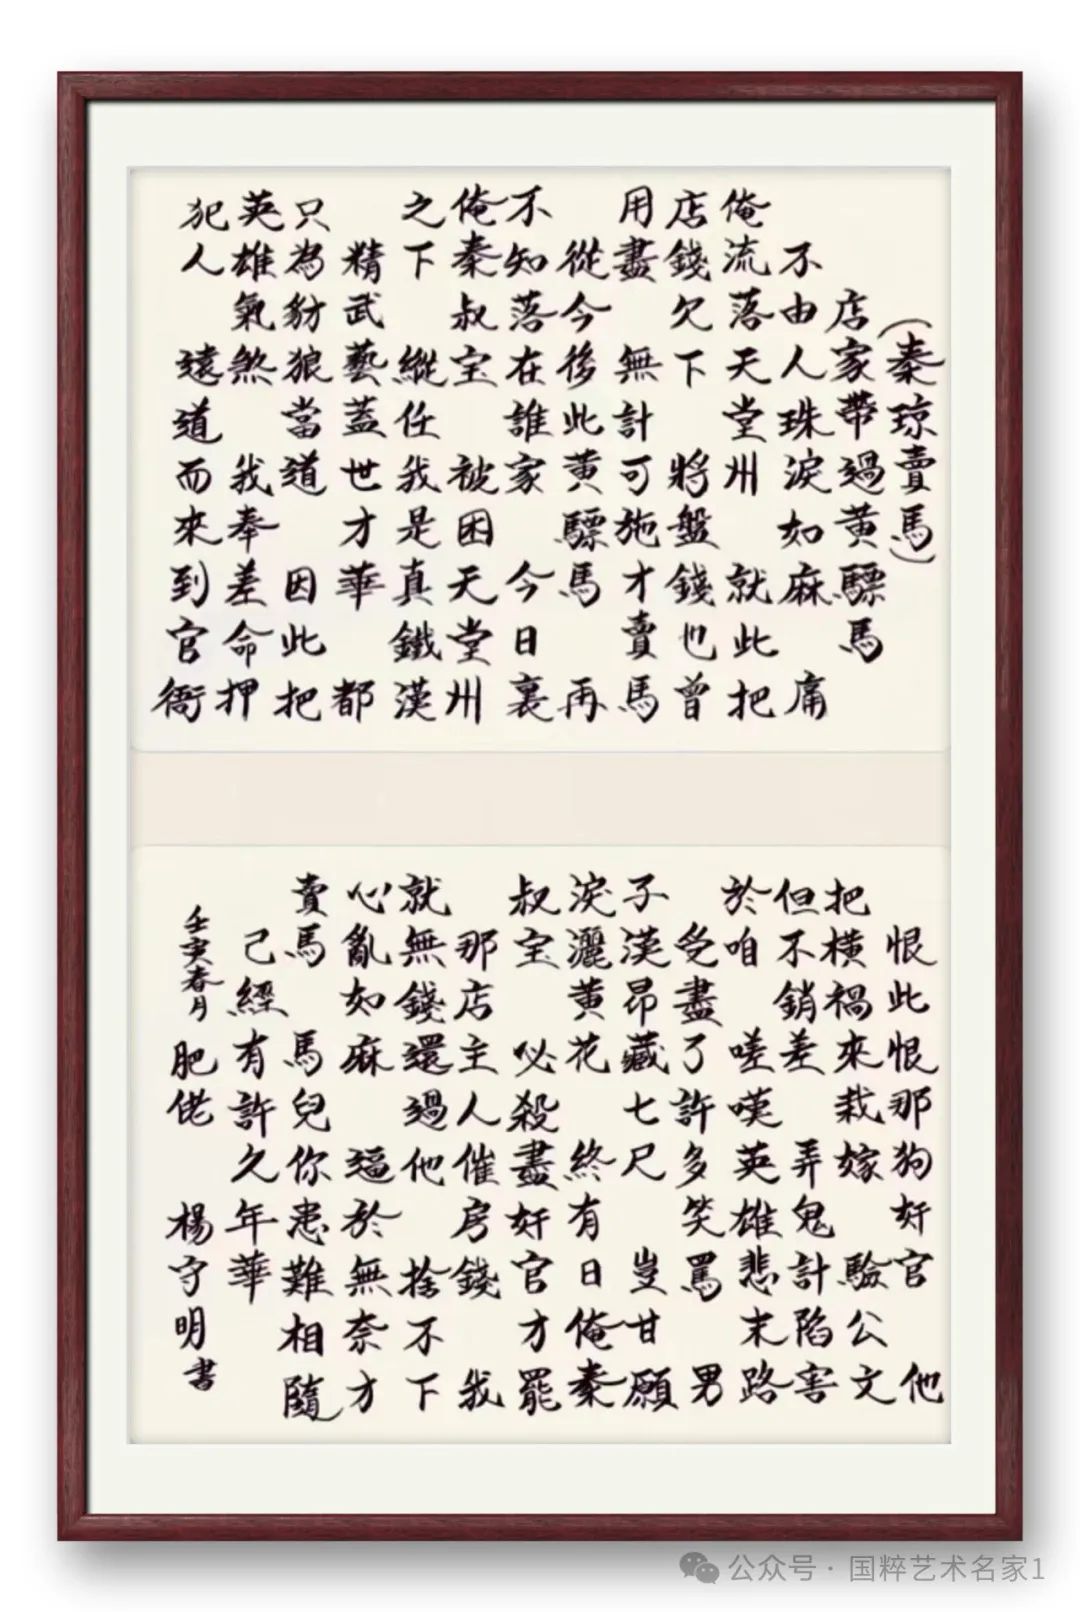 (秦琼賣馬)
店家帶過黄驃馬
不由人珠淚如麻 痛
俺流落天堂州 就此把
店錢欠下 將盤錢也曾
用盡 無計可施才賣馬
從今後此黄驃馬 再
不知落在誰家 今日裏
俺秦叔宝 被困天堂州
之下 縱任我是真鐵漢
精武藝蓋世才華 都
只為豺狼當道 因此把
英雄氣煞 我奉差命押
犯人 遠道而來到官衙
恨此恨那狗奸官 他
把橫禍來栽嫁 驗公文
但不銷差 弄鬼計陷害
於咱 嗟嘆英雄悲末路
受盡了許多笑罵 男
子漢昂藏七尺 豈甘願
淚灑黄花 終有日俺秦
叔宝 必殺盡奸官才罷
那店主人催房錢 我
就無錢還過他 捨不下
心亂如麻 逼於無奈才
賣馬 馬兒你患難相隨
己經有許久年華
壬寅春月 肥佬 楊守明書
公众号·国粹艺术名家1